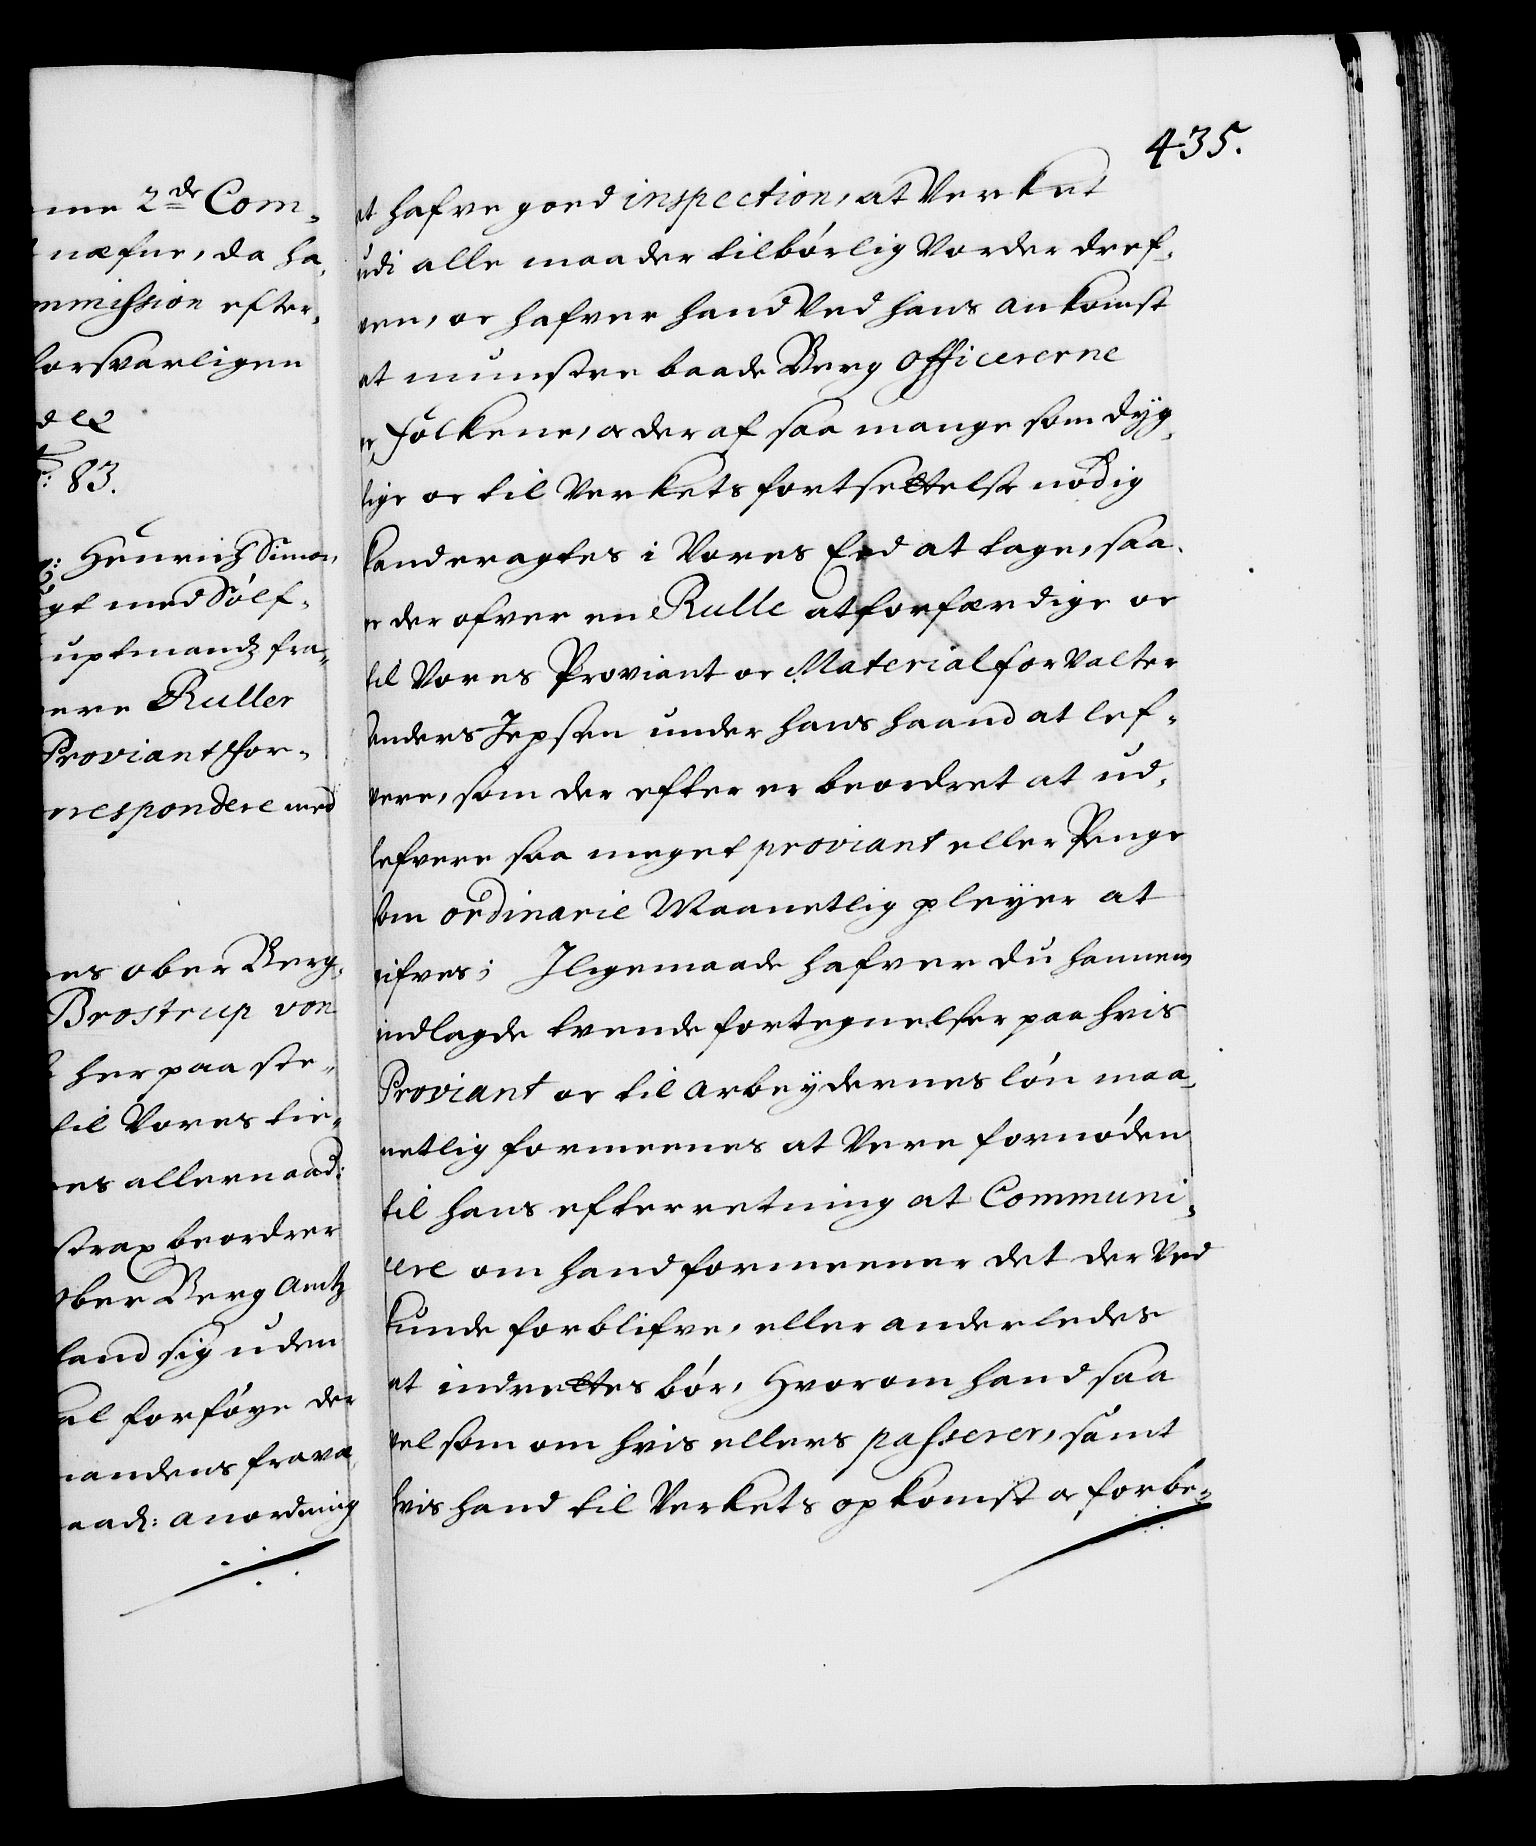 me 2de Com-
næfne, da ha-
mmission efter-
forsvarligen
83.
Henrich Simon-
gt med Sølf-
uptmandz fra-
ere Ruller
Proviant for-
rrespondere med
es ober Berg-
Brostrup von
her paa ste-
til Vores tie-
es allernaad:
strax beordrer
Ober Berg Amtz
land sig uden
al forføye der
mandens fravæ-
aad: anordning
435.
at hafve goed inspection, at Verket
udi alle maader tilbørlig Vorder dref-
ven, oc hafver hand Ved hans ankomst
at munstre baade Berg Officererne
oc Folkene, oc deraf saa mange som dyg-
tige oc til Verkets fortsettelse nødig
kand eragtes i Vores Eed at tage, saa-
der ofver en Rulle at forfærdige oc
til Vores Proviant oc Material forValter
Anders Jepsen under hans haand at lef-
vere, som der efter er beordret at ud-
lefvere saa meget proviant eller Penge
som ordinarie Maanetlig pleyer at
gifves; Jligemaade hafver du hannem
indlagde tvende fortegnelser paa hvis
Proviant oc til arbeydernes løn maa-
netlig formeenes at Vere fornøden
til hans efterretning at Communi-
cere om hand formeener det der Ved
kunde forblifve, eller anderledes
at indrettes bør, Hvorom hand saa
vel som om hvis ellers passerer, samt
hvis hand til Verkets opkomst oc forbe-